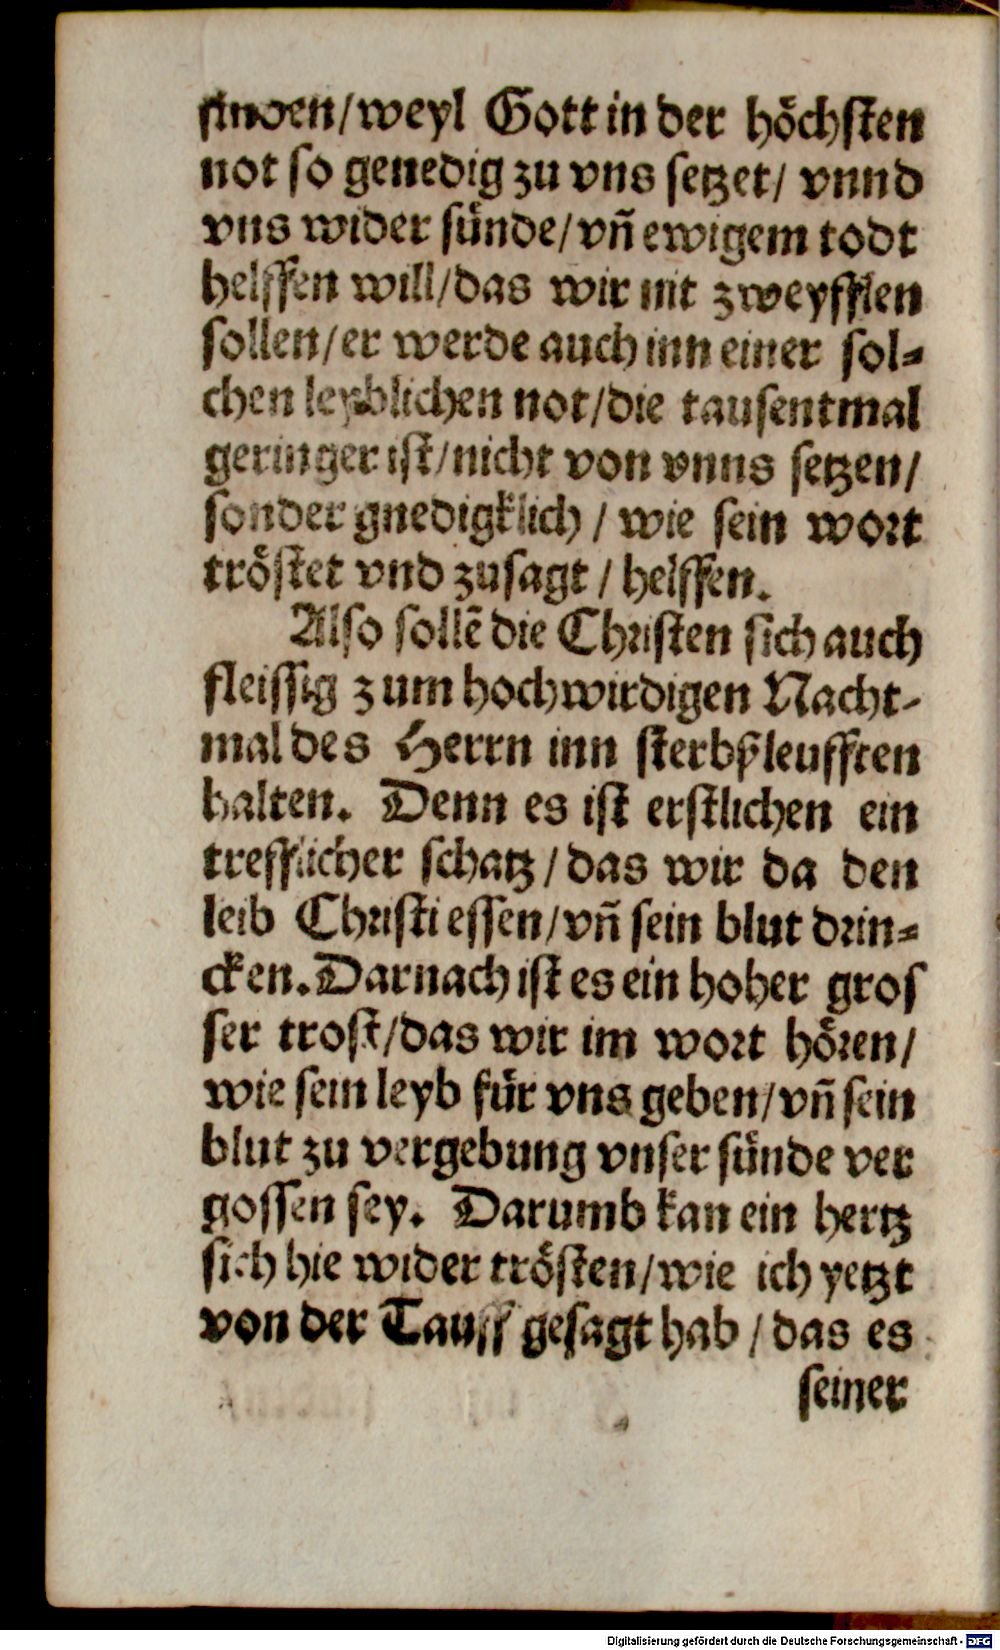 finden/weyl Gott in der höchsten
not so genedig zu vns setzet/ vnnd
vns wider sünde/vñ ewigem todt
helffen will/das wir nit zweyfflen
sollen/er werde auch inn einer sol⸗
chen leyblichen not/die tausentmal
geringer ist/nicht von vnns setzen/
sonder gnedigklich / wie sein wort
tröstet vnd zusagt / helffen.
Also sollẽ die Christen sich auch
fleissig zum hochwirdigen Nacht⸗
mal des Herrn inn sterbßleufften
halten. Denn es ist erstlichen ein
trefflicher schatz/das wir da den
leib Christi essen/vñ sein blut drin⸗
cken. Darnach ist es ein hoher gros
ser trost/das wir im wort hören/
wie sein leyb für vns geben/vñ sein
blut zu vergebung vnser sünde ver
gossen sey. Darumb kan ein hertz
sich hie wider trösten/wie ich yetzt
von der Tauff gesagt hab / das es
seiner
Digitalisierung gefördert durch die Deutsche Forschungsgemeinschaft - DFG